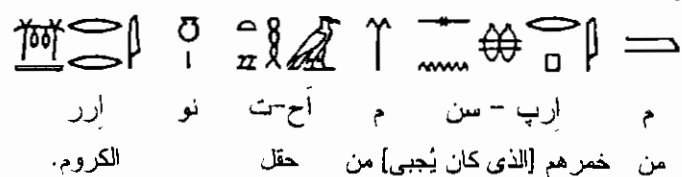 م إرپ – سن م آح-ت نو إرر
من خمرهم [الذى كان يُجبى] من حقل الكروم.